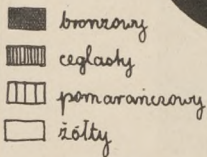 bronzowy
ceglasty
pomarańczowy
żółty